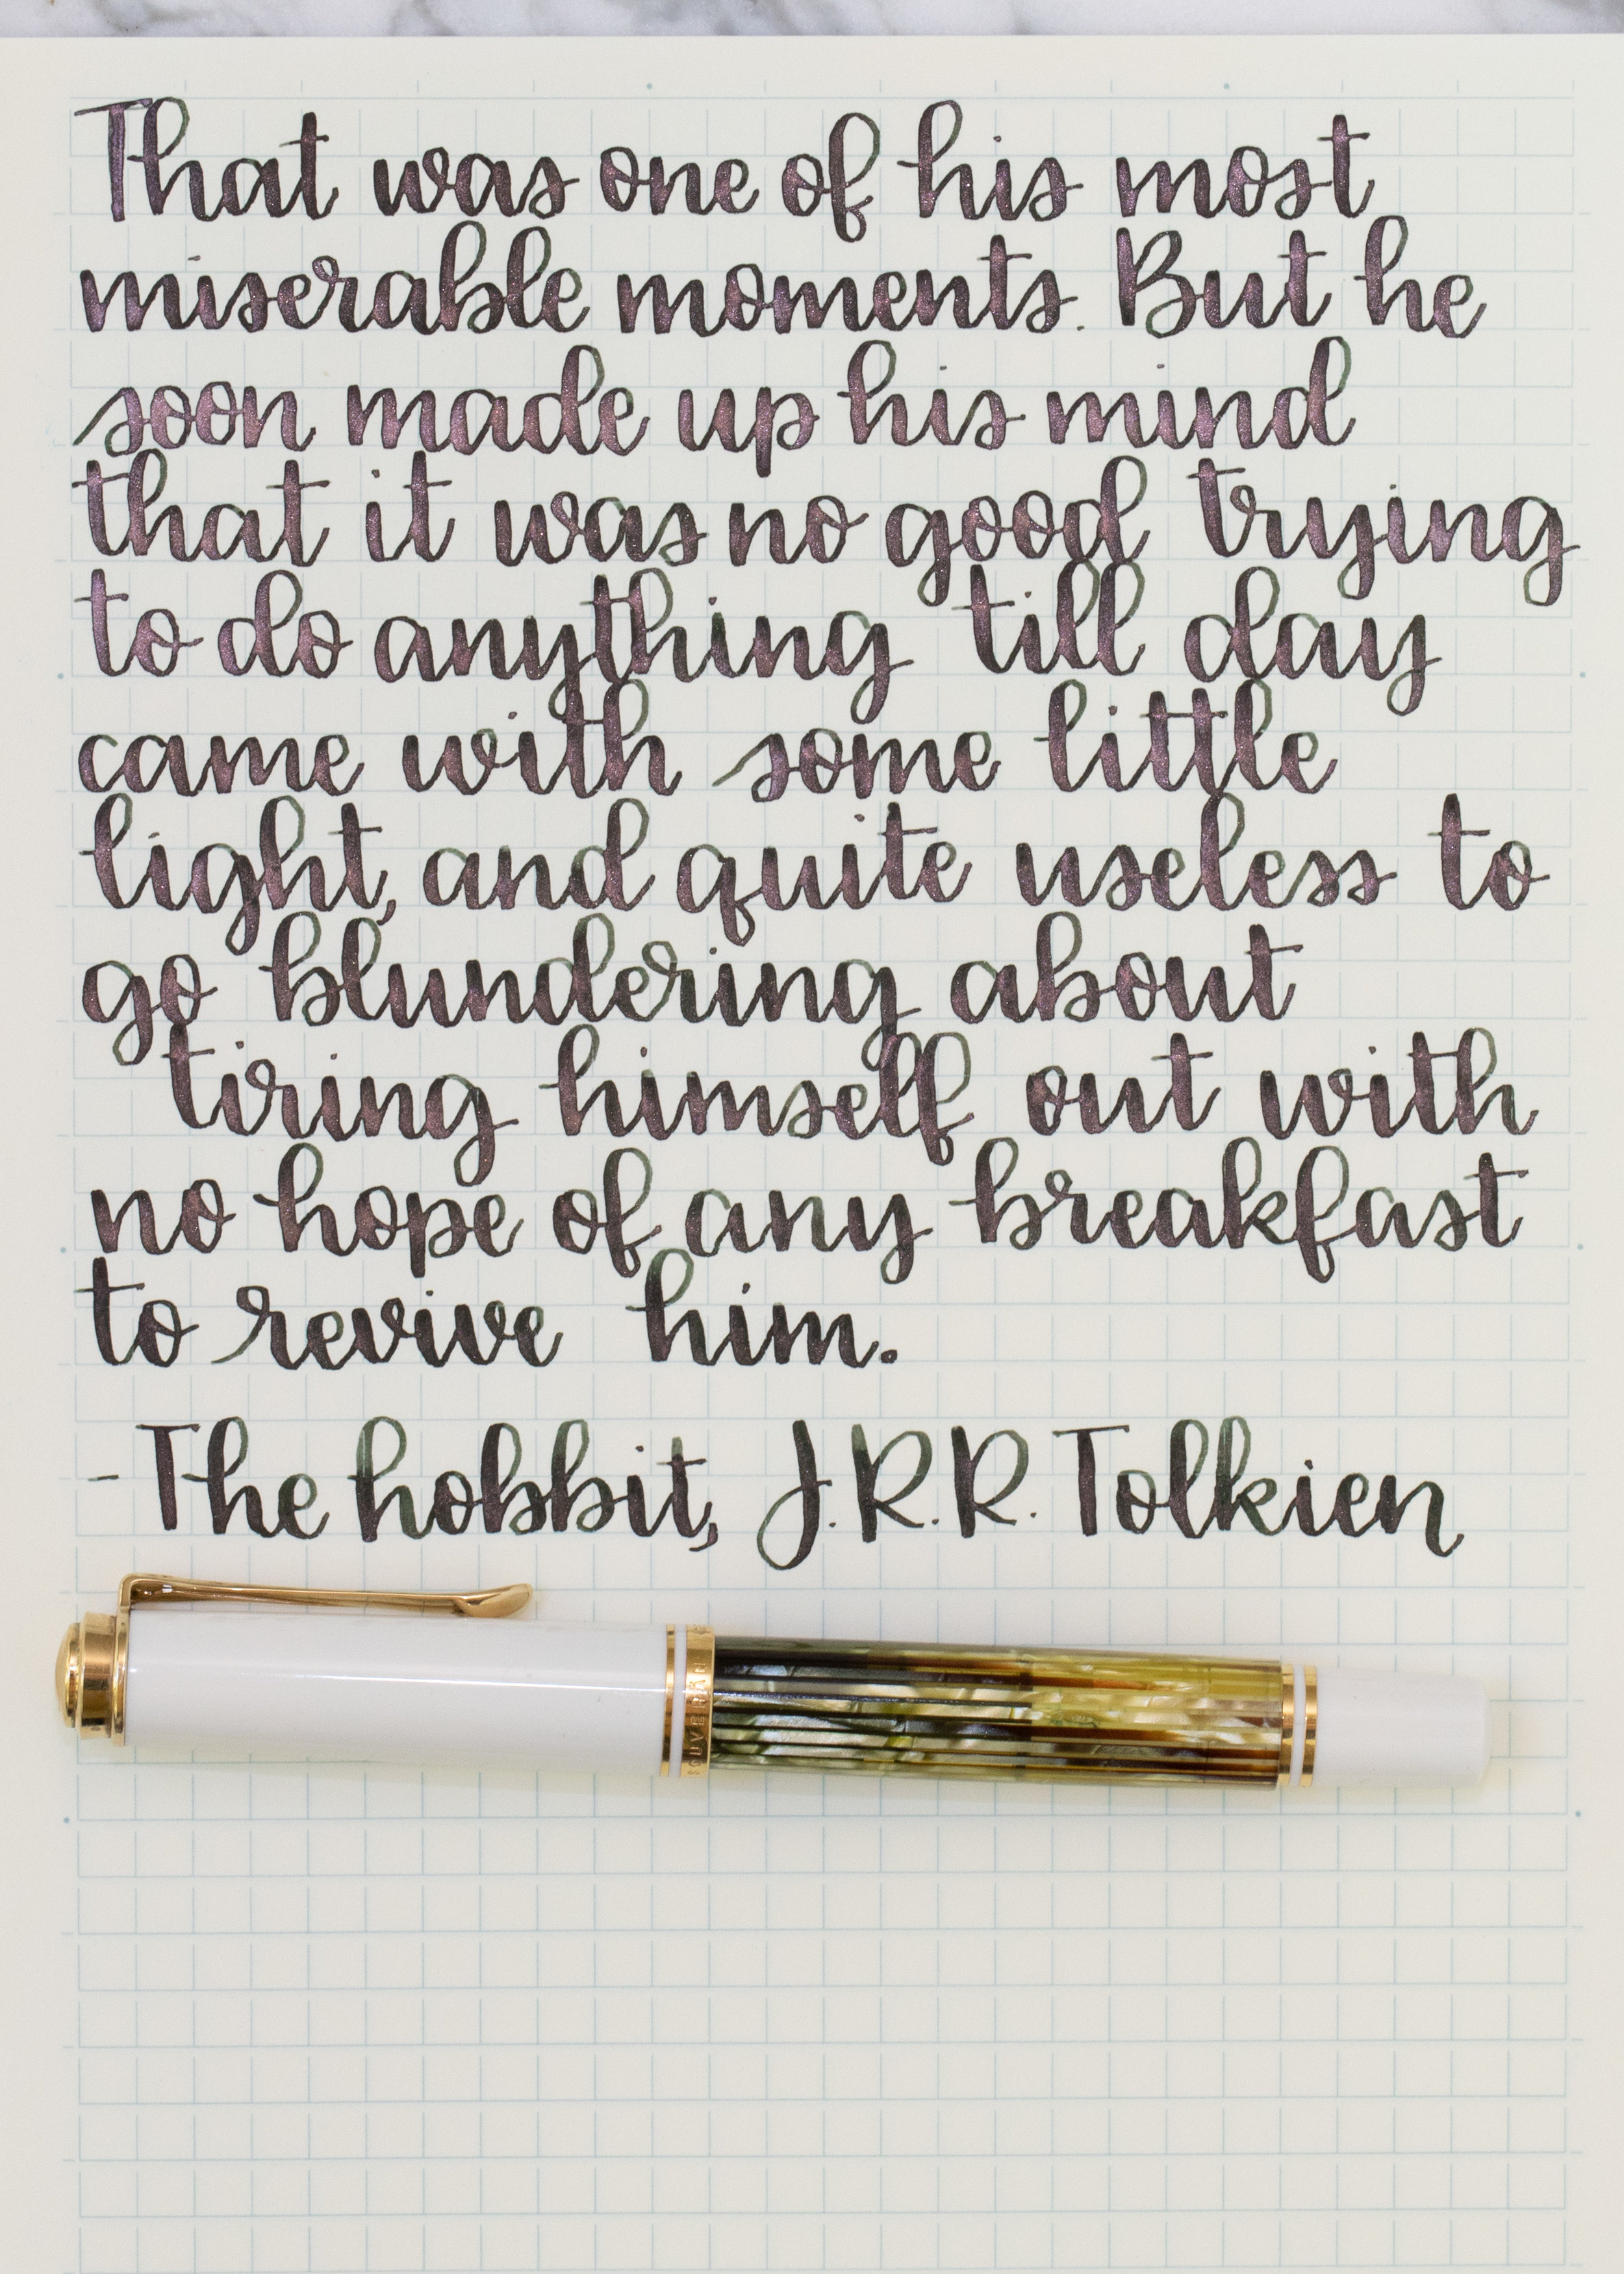 That was one of his most
miserable moments. But he
soon made up his mind
that it was no good trying
to do anything till day
came with some little
light, and quite useless to
go blundering about
tiring himself out with
no hope of any breakfast
to revive him.
- The hobbit, J.R.R. Tolkien
SOUVERÄN